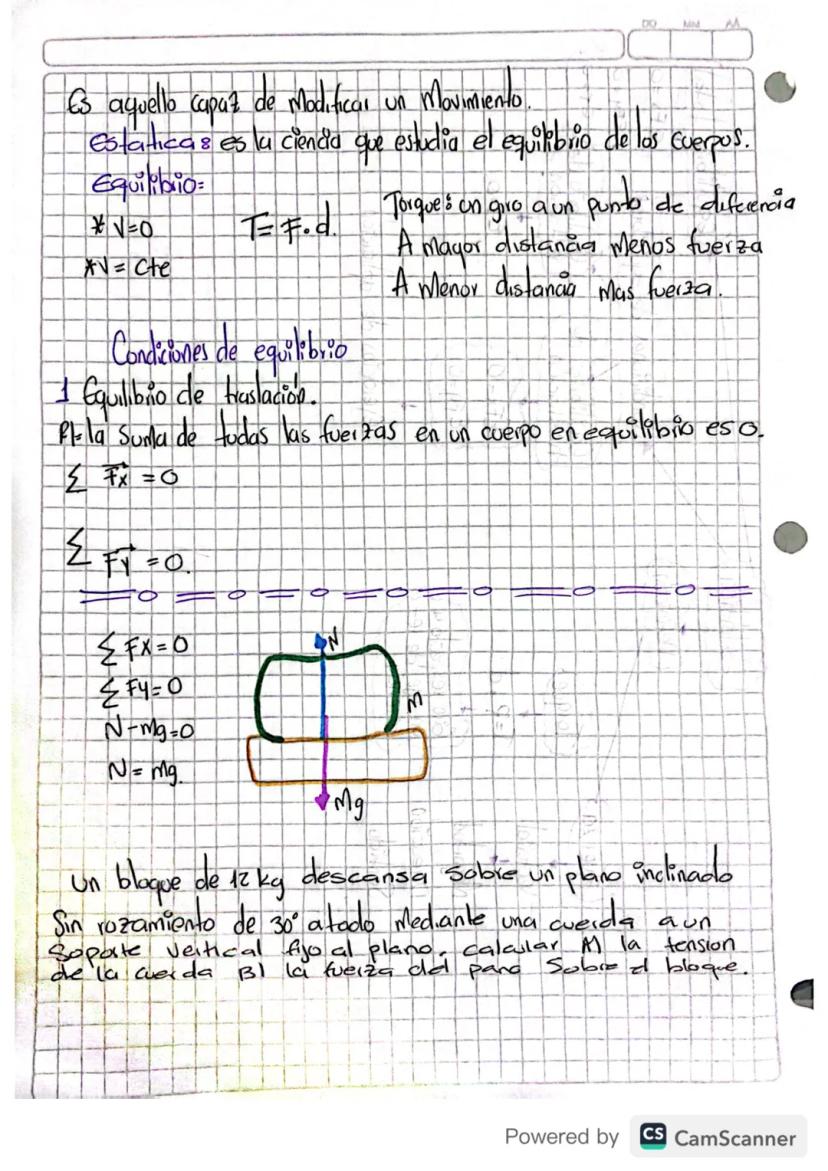 DD MM AA
Es aquello capaz de Modificar un Movimiento.
Estatica: es la ciencia que estudia el equilibrio de los cuerpos.
Equilibrio:
* V=0
*V = Cte
T= F.d.
Torque: un giro a un punto de diferencia
A mayor distancia Menos fuerza
A Menor distancia Mas fuerza.
Condiciones de equilibrio
1 Equilibrio de traslación.
la suma de todas las fuerzas en un cuerpo en equilibrio es 0.
Σ Fx = 0
Σ Fy = 0.
Σ FX = 0
Σ FY = 0
N-mg=0
N = mg.
N
M
Mg
Un bloque de 12 kg descansa sobre un plano inclinado
Sin rozamiento de 30° atado Mediante una cuerda a un
Soporte vertical fijo al plano. calcular A) la tension
de la cuerda B) la fuerza del pano Sobre el bloque.
Powered by CS CamScanner